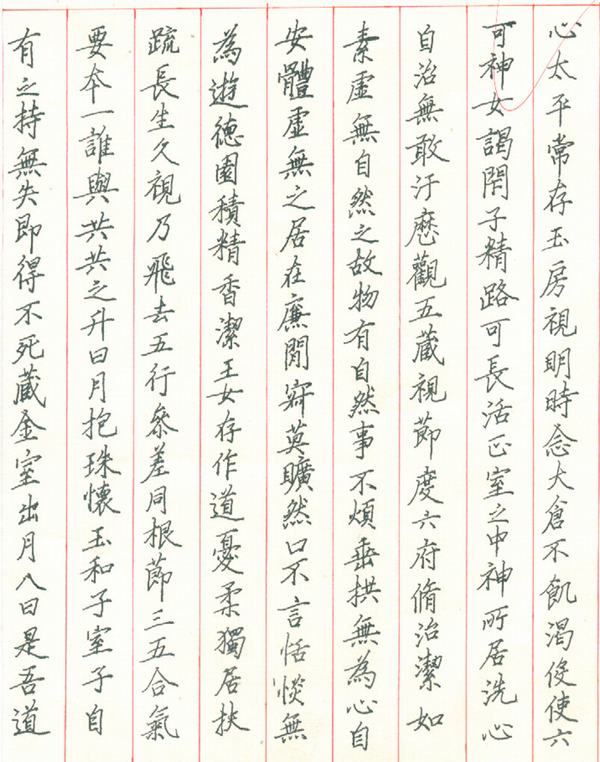 心太平常存玉房視明時念大倉不飢渴役使六
可神女謁閇子精路可長活正室之中神所居洗心
自治無敢汙歷觀五藏視節度六府脩治潔如
素虛無自然之故物有自然事不煩垂拱無為心自
安體虛無之居在廉間寂莫曠然口不言恬惔無
為遊德園積精香潔玉女存作道憂柔獨居扶
疏長生久視乃飛去五行參差同根節三五合氣
要本一誰與共共之升日月抱珠懷玉和子室子自
有之持無失即得不死藏金室出月入日是吾道